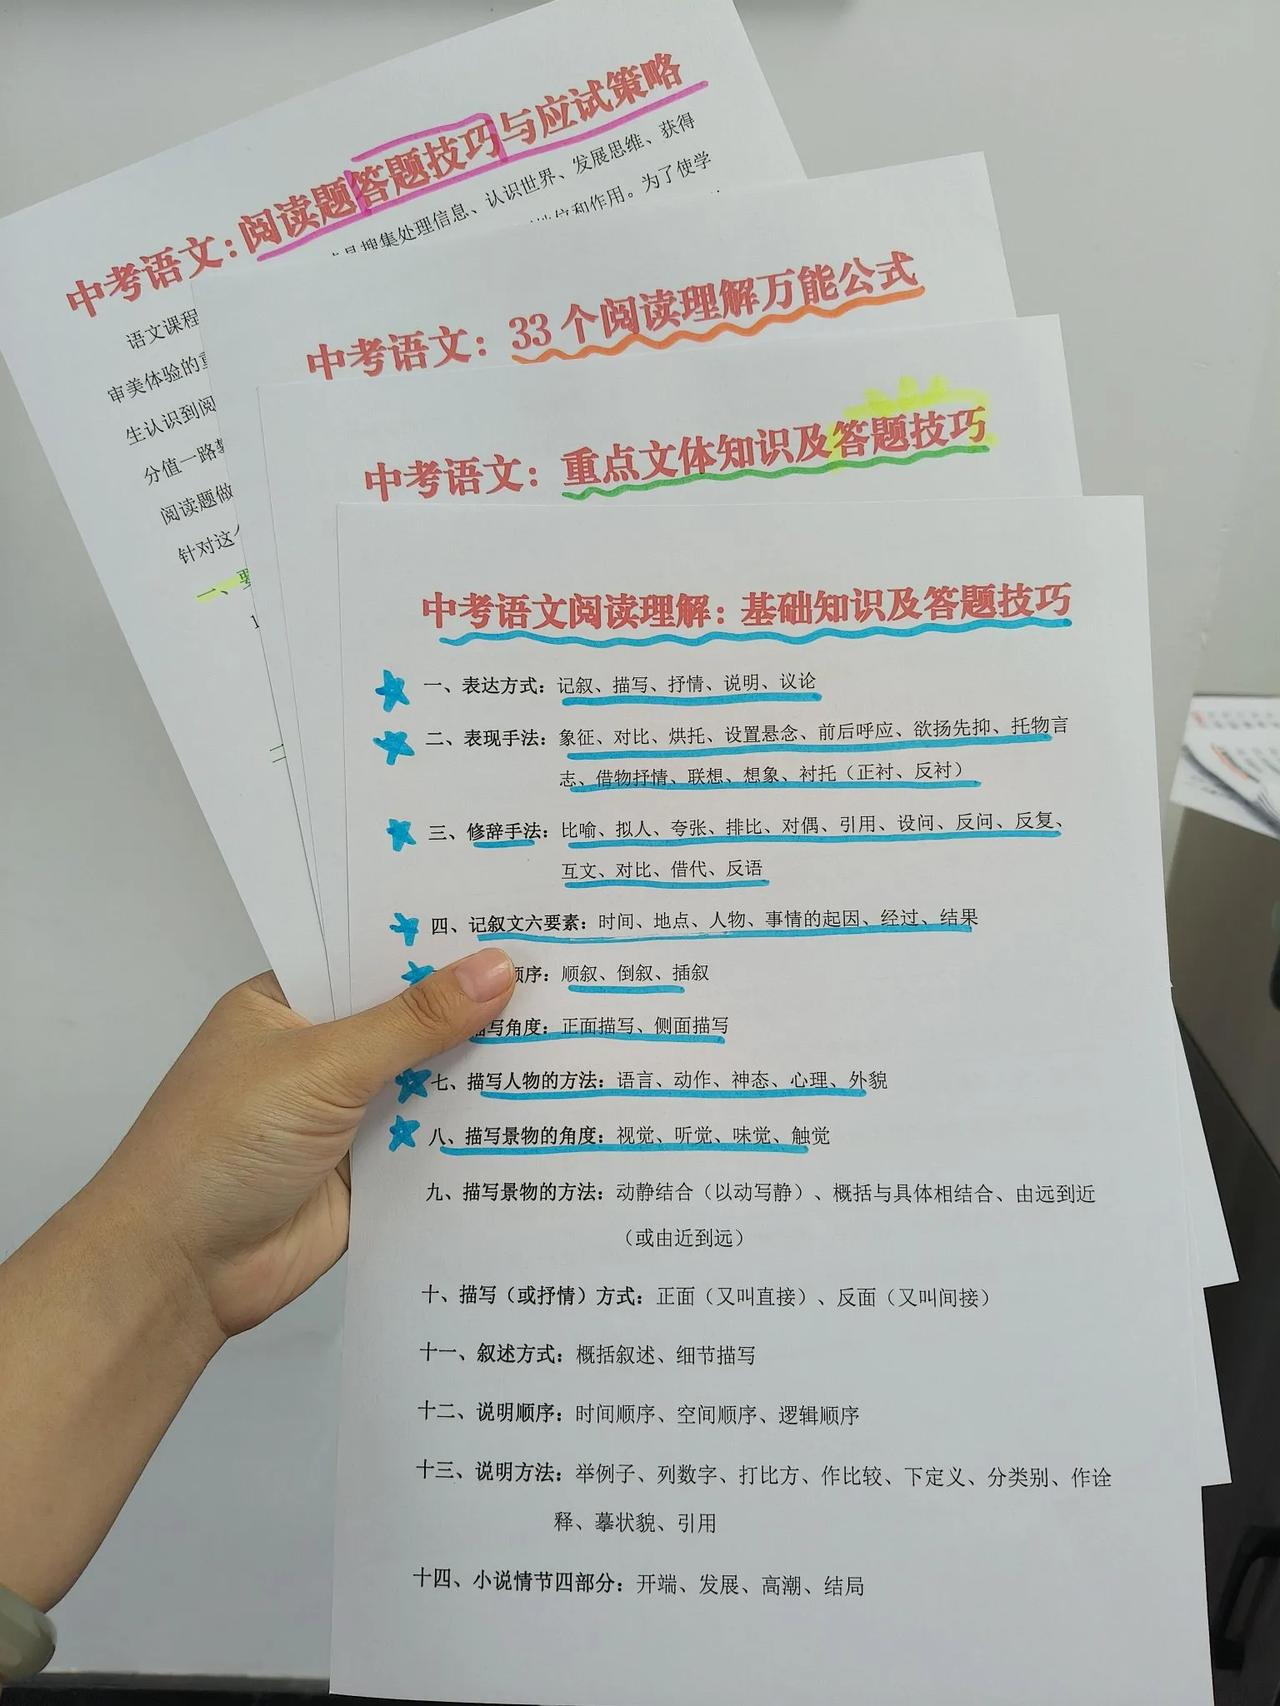 中考语文：阅读题答题技巧与应试策略
搜集处理信息、认识世界、发展思维、获得
语文课程
地位和作用。为了使学
审美体验的重
生认识到阅
分值一路
阅读题做
针对这
一、要
1
二
中考语文：33个阅读理解万能公式
中考语文：重点文体知识及答题技巧
中考语文阅读理解：基础知识及答题技巧
一、表达方式：记叙、描写、抒情、说明、议论
二、表现手法：象征、对比、烘托、设置悬念、前后呼应、欲扬先抑、托物言
志、借物抒情、联想、想象、衬托（正衬、反衬）
三、修辞手法：比喻、拟人、夸张、排比、对偶、引用、设问、反问、反复、
互文、对比、借代、反语
四、记叙文六要素：时间、地点、人物、事情的起因、经过、结果
顺序：顺叙、倒叙、插叙
描写角度：正面描写、侧面描写
七、描写人物的方法：语言、动作、神态、心理、外貌
八、描写景物的角度：视觉、听觉、味觉、触觉
九、描写景物的方法：动静结合（以动写静）、概括与具体相结合、由远到近
（或由近到远）
十、描写（或抒情）方式：正面（又叫直接）、反面（又叫间接）
十一、叙述方式：概括叙述、细节描写
十二、说明顺序：时间顺序、空间顺序、逻辑顺序
十三、说明方法：举例子、列数字、打比方、作比较、下定义、分类别、作诠
释、摹状貌、引用
十四、小说情节四部分：开端、发展、高潮、结局